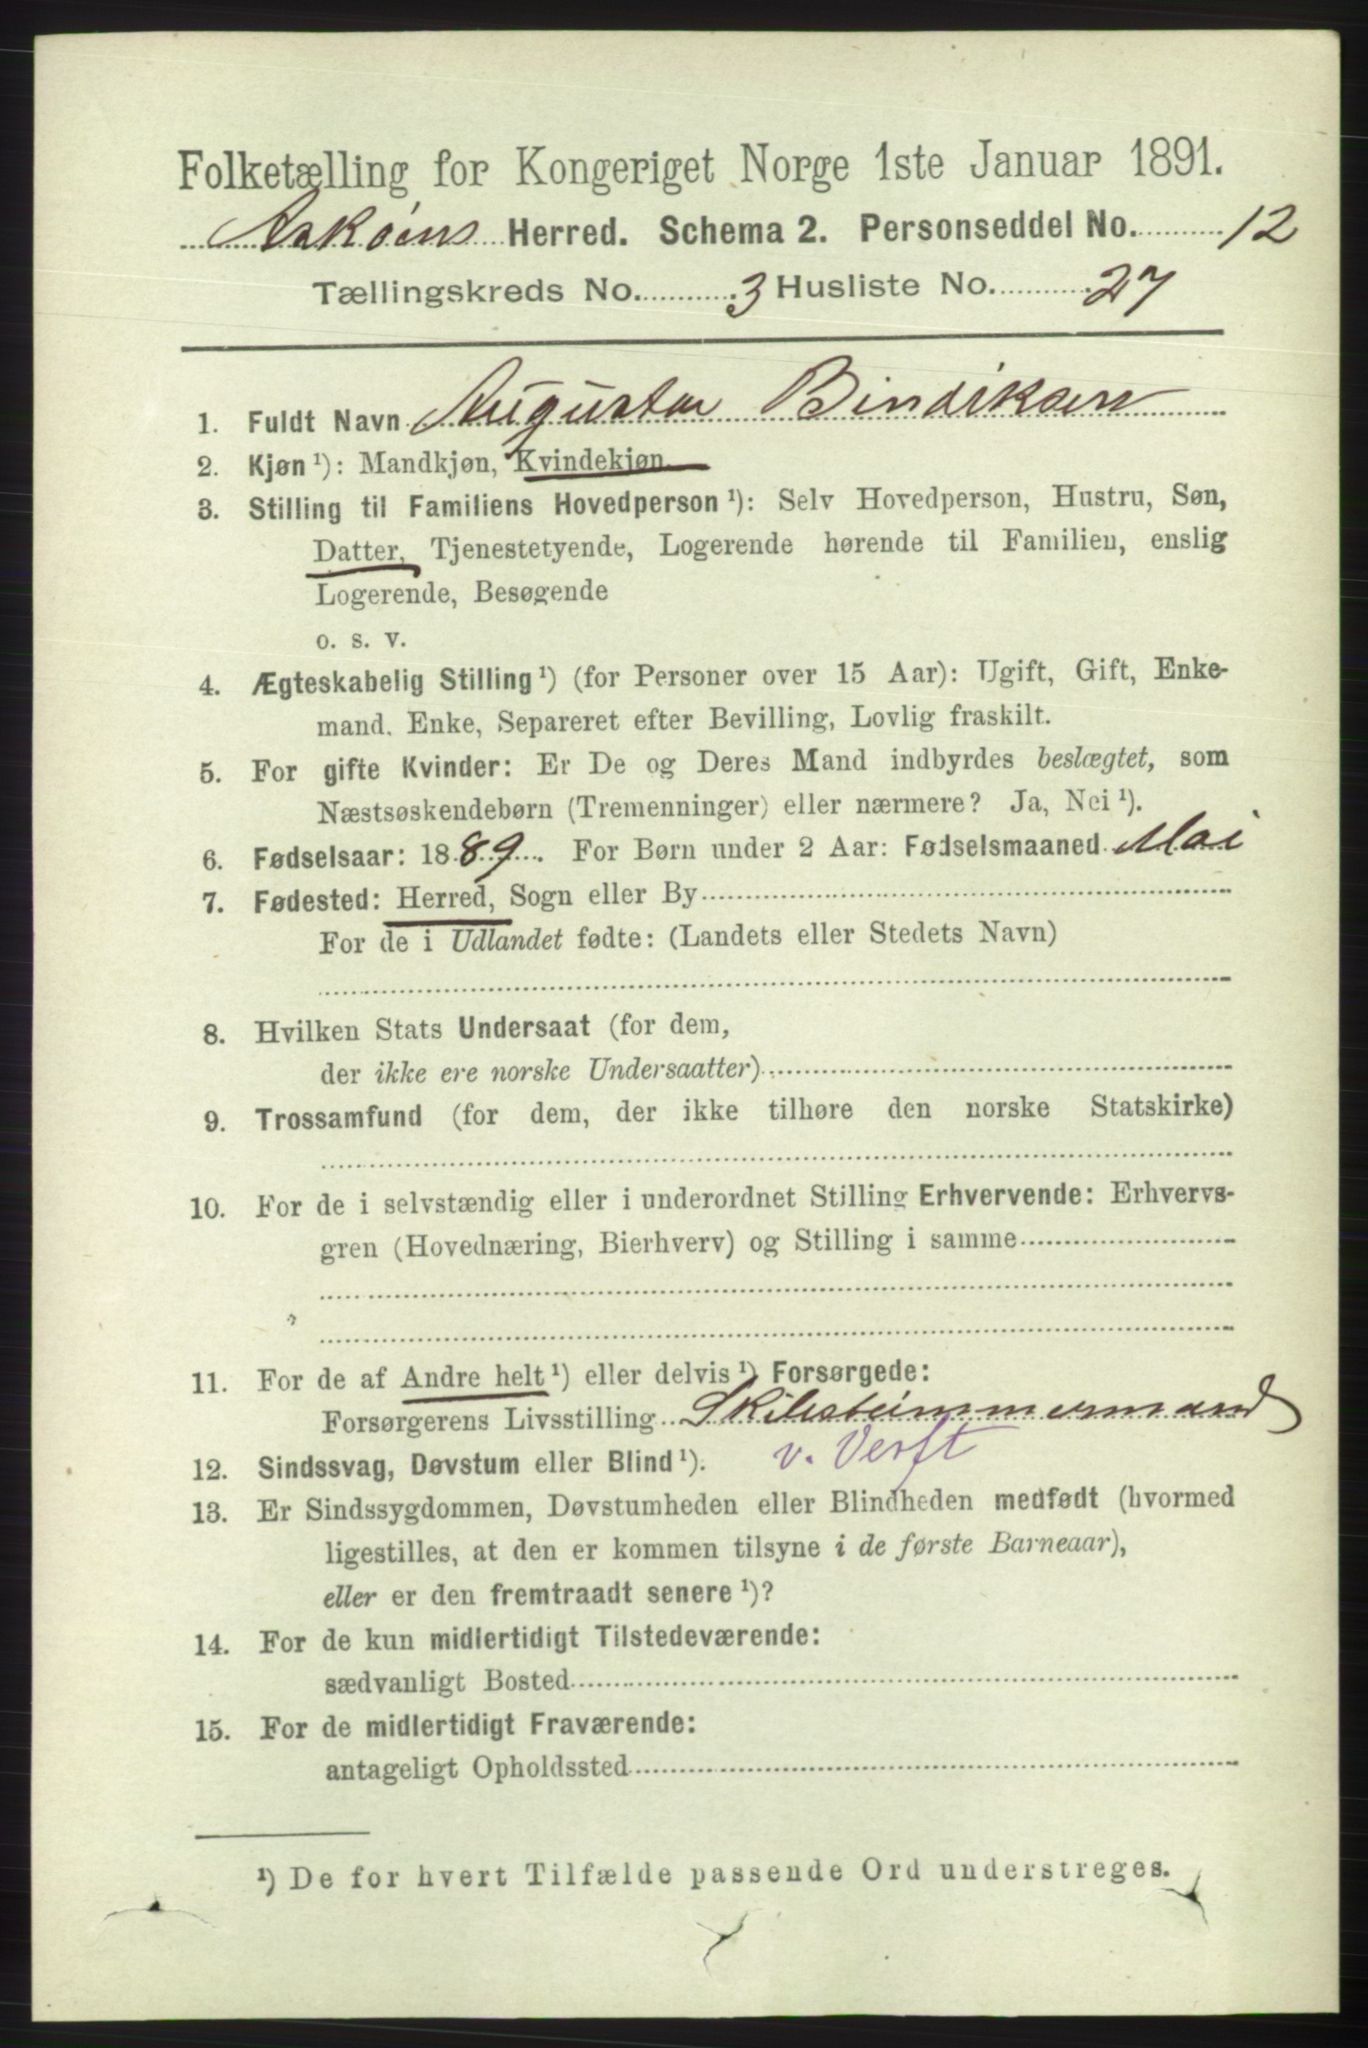 Folketælling for Kongeriget Norge 1ste Januar 1891.
Askøens Herred. Schema 2. Personseddel No. 12
Tællingskreds No. 3 Husliste No. 27
1. Fuldt Navn Augusta Bindiksen
2. Kjøn ¹): Mandkjøn, Kvindekjøn.
3. Stilling til Familiens Hovedperson ¹): Selv Hovedperson, Hustru, Søn,
Datter, Tjenestetyende, Logerende hørende til Familien, enslig
Logerende, Besøgende
o. s. v.
4. Ægteskabelig Stilling ¹) (for Personer over 15 Aar): Ugift, Gift, Enke-
mand, Enke, Separeret efter Bevilling, Lovlig fraskilt.
5. For gifte Kvinder: Er De og Deres Mand indbyrdes beslægtet, som
Næstsøskendebørn (Tremenninger) eller nærmere? Ja, Nei ¹).
6. Fødselsaar: 1889. For Børn under 2 Aar: Fødselsmaaned Mai
7. Fødested: Herred, Sogn eller By
For de i Udlandet fødte: (Landets eller Stedets Navn)
8. Hvilken Stats Undersaat (for dem,
der ikke ere norske Undersaatter)
9. Trossamfund (for dem, der ikke tilhøre den norske Statskirke)
10. For de i selvstændig eller i underordnet Stilling Erhvervende: Erhvervs-
gren (Hovednæring, Bierhverv) og Stilling i samme
11. For de af Andre helt ¹) eller delvis ¹) Forsørgede:
Forsørgerens Livsstilling Skibstømmermand
v. Verft
12. Sindssvag, Døvstum eller Blind ¹).
13. Er Sindssygdommen, Døvstumheden eller Blindheden medfødt (hvormed
ligestilles, at den er kommen tilsyne i de første Barneaar),
eller er den fremtraadt senere ¹)?
14. For de kun midlertidigt Tilstedeværende:
sædvanligt Bosted
15. For de midlertidigt Fraværende:
antageligt Opholdssted
¹) De for hvert Tilfælde passende Ord understreges.